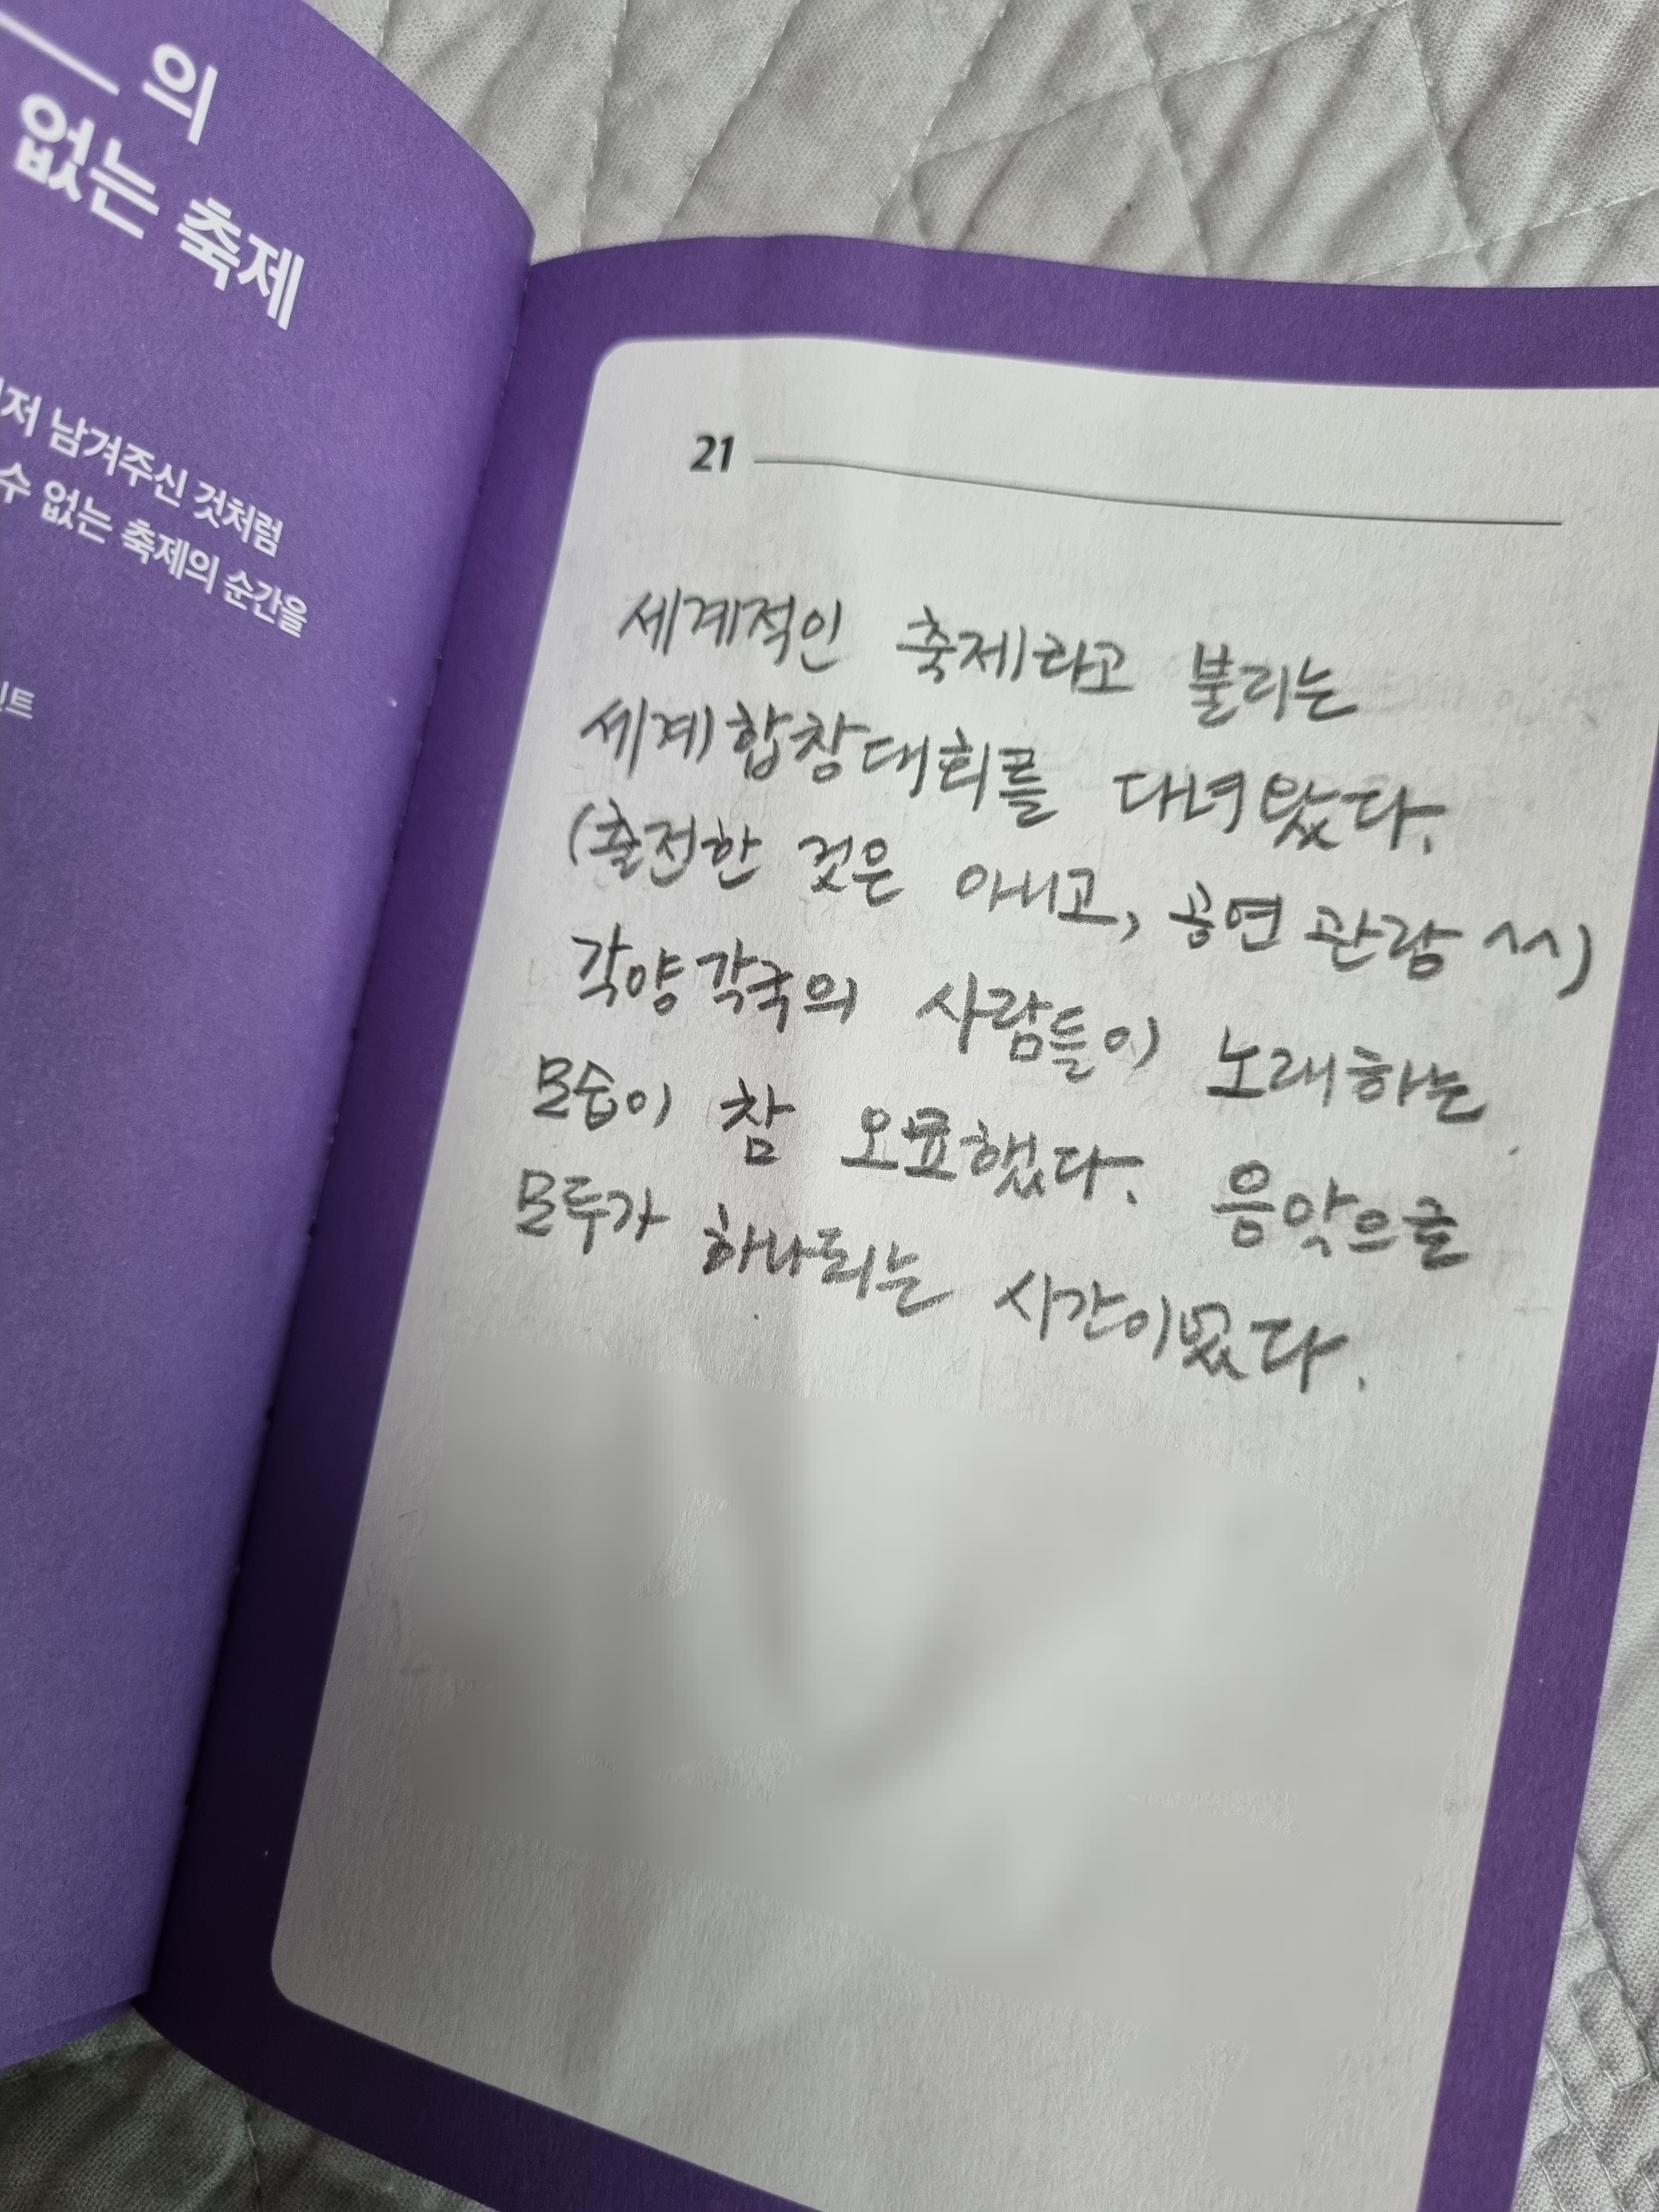 의
없는 축제
저 남겨주신 것처럼
수 없는 축제의 순간을
트
21
세계적인 축제라고 불리는
세계합창대회를 다녀왔다.
(출전한 것은 아니고, 공연 관람 ^^)
각양각국의 사람들이 노래하는
모습이 참 오묘했다. 음악으로
모두가 하나되는 시간이었다.